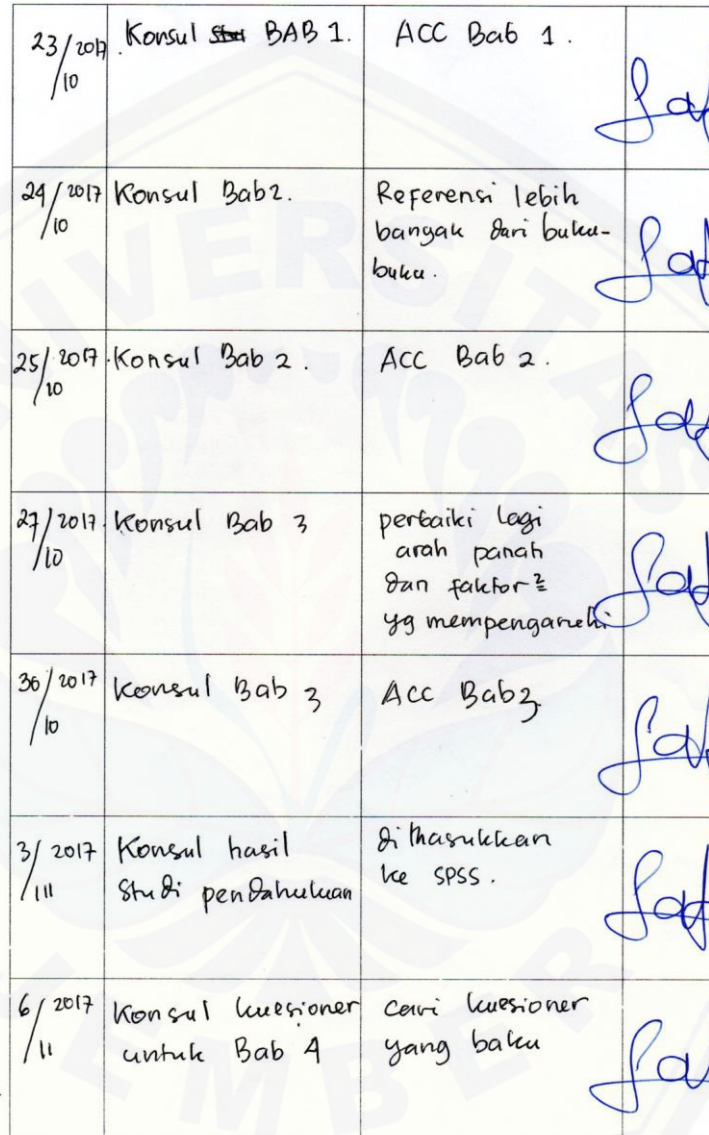 23/10 2017
Konsul BAB 1.
ACC Bab 1.
24/10 2017
Konsul Bab 2.
Referensi lebih
banyak dari buku-
buku.
25/10 2017
Konsul Bab 2.
ACC Bab 2.
27/10 2017
Konsul Bab 3
perbaiki lagi
arah panah
dan faktor2
yg mempengaruhi
30/10 2017
Konsul Bab 3
ACC Bab 3
3/11 2017
Konsul hasil
Studi pendahuluan
dimasukkan
ke SPSS.
6/11 2017
Konsul kuesioner
untuk Bab 4
cari kuesioner
yang baku
UNIVERSITAS
JEMBER